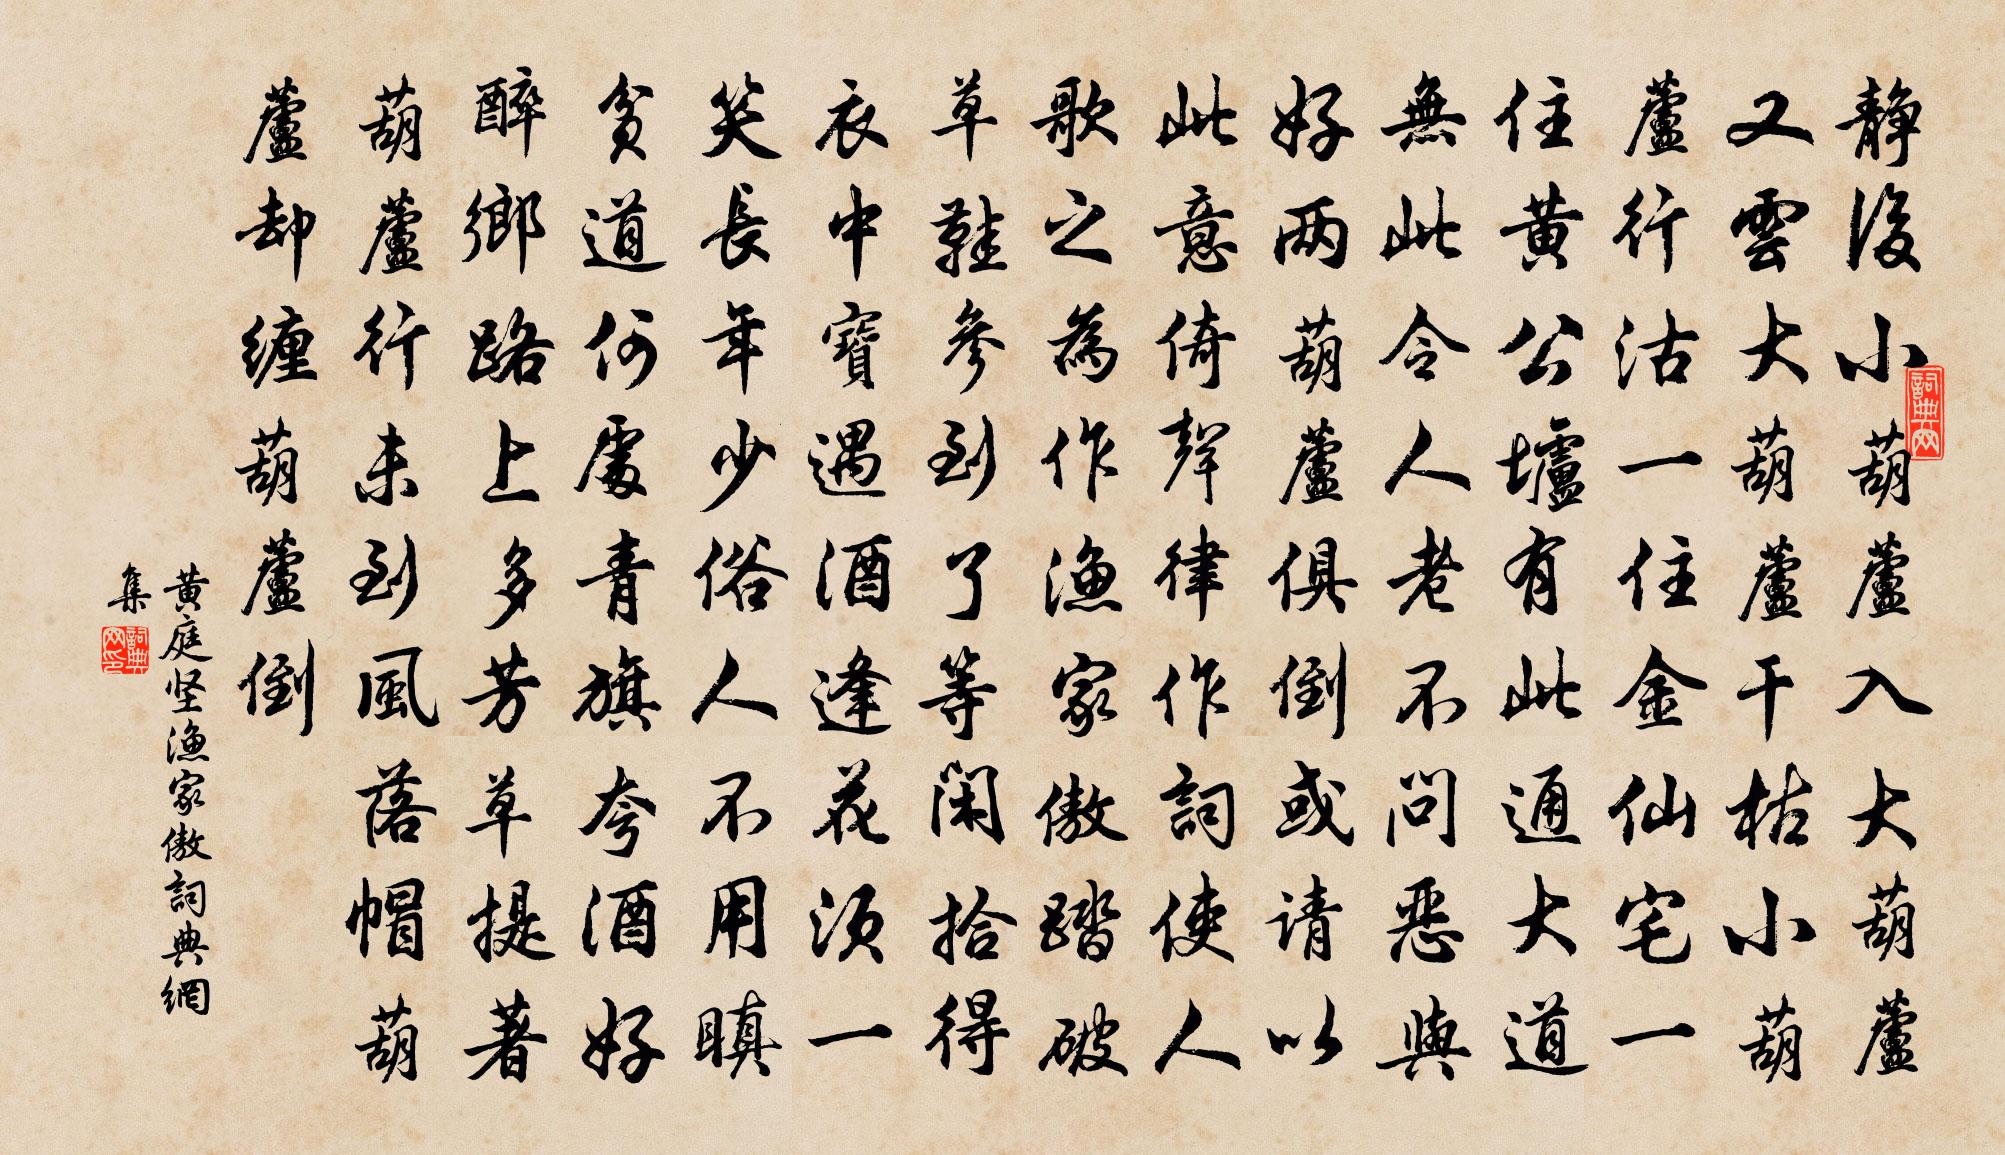 静後小葫蘆入大葫蘆
又雲大葫蘆干枯小葫
蘆行沽一住金仙宅一
住黄公壚有此通大道
無此令人老不問惡與
好两葫蘆俱倒或请以
此意倚聲律作詞使人
歌之為作漁家傲踏破
草鞋參到了等閑拾得
衣中寶遇酒逢花須一
笑長年少俗人不用瞋
貧道何處青旗夸酒好
醉鄉路上多芳草提著
葫蘆行未到風落帽葫
蘆却缠葫蘆倒
黄庭坚漁家傲詞典網
集
詞典网
詞典网印